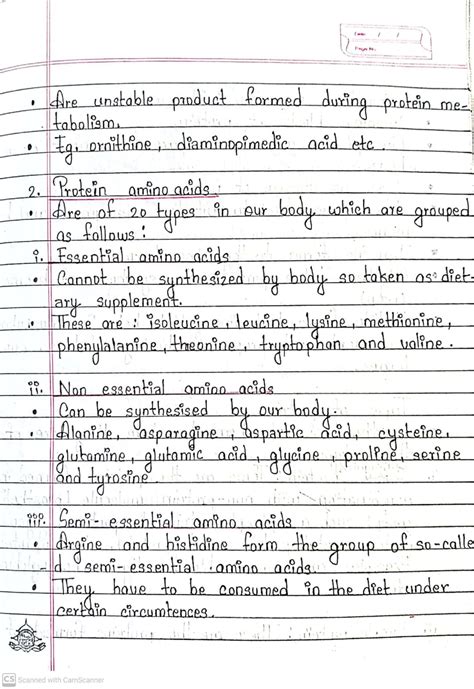 Date: / /
Page No.
• Are unstable product formed during protein me-
tabolism.
• Eg. ornithine, diaminopimedic acid etc.
2. Protein amino acids:
• Are of 20 types in our body which are grouped
as follows:
i. Essential amino acids
• Cannot be synthesized by body so taken as diet-
ary supplement.
• These are : isoleucine, leucine, lysine, methionine,
phenylalanine, theonine, tryptophan and valine.
ii. Non essential amino acids
• Can be synthesised by our body.
• Alanine, asparagine, aspartic acid, cysteine,
glutamine, glutamic acid, glycine, proline, serine
and tyrosine.
iii. Semi-essential amino acids
• Argine and histidine form the group of so-calle
d semi-essential amino acids
• They have to be consumed in the diet under
certain circumtences.
CS Scanned with CamScanner